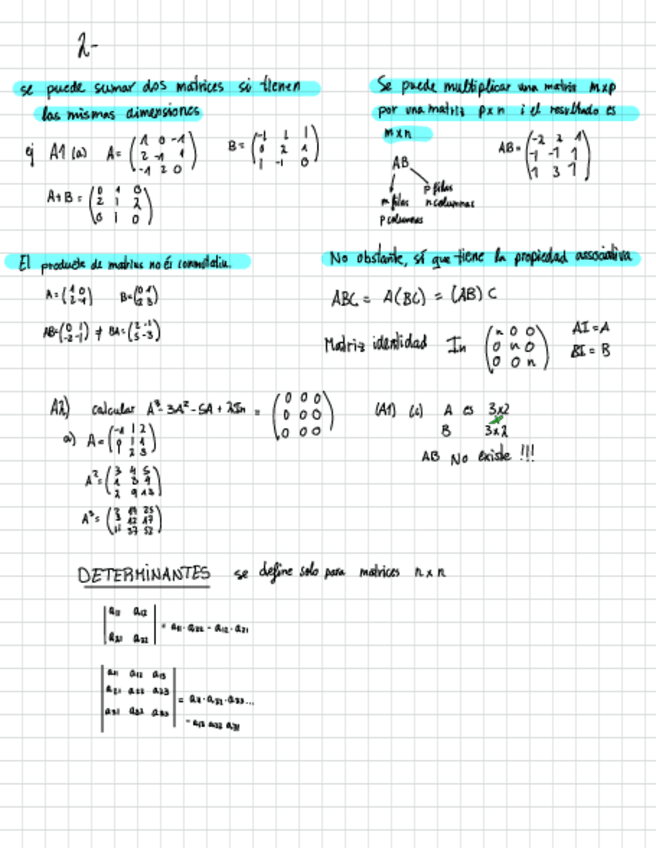 2-
se puede sumar dos matrices si tienen
las mismas dimensiones
ej A1 (a) A = (1 0 -1
2 -1 1
-1 2 0)
B = (-1 1 1
0 2 1
1 -1 0)
A+B = (0 1 0
2 1 2
0 1 0)
Se puede multiplicar una matriz m×p
por una matriz p×n i el resultado es
m×n
AB
m filas
p columnas
p filas
n columnas
AB = (-2 2 1
-1 -1 1
1 3 1)
El producte de matrius no és conmutatiu.
A = (1 0
2 -1)
B = (0 1
2 3)
AB = (0 1
-2 -1) ≠ BA = (2 -1
5 -3)
No obstante, sí que tiene la propiedad associativa
ABC = A(BC) = (AB) C
Matriz identidad In (n 0 0
0 n 0
0 0 n)
AI = A
BI = B
A2) calcular A³ - 3A² - 5A + 2In = (0 0 0
0 0 0
0 0 0)
a) A = (-1 1 2
0 1 1
1 2 3)
A² = (3 4 5
1 3 4
2 9 13)
A³ =
(A1) (c) A es 3×2
B 3×2
AB No existe !!!
DETERMINANTES se define solo para matrices n×n
|a11 a12
a21 a22| = a11·a22 - a12·a21
|a11 a12 a13
a21 a22 a23
a31 a32 a33| = a11·a22·a33...
- a13 a22 a31